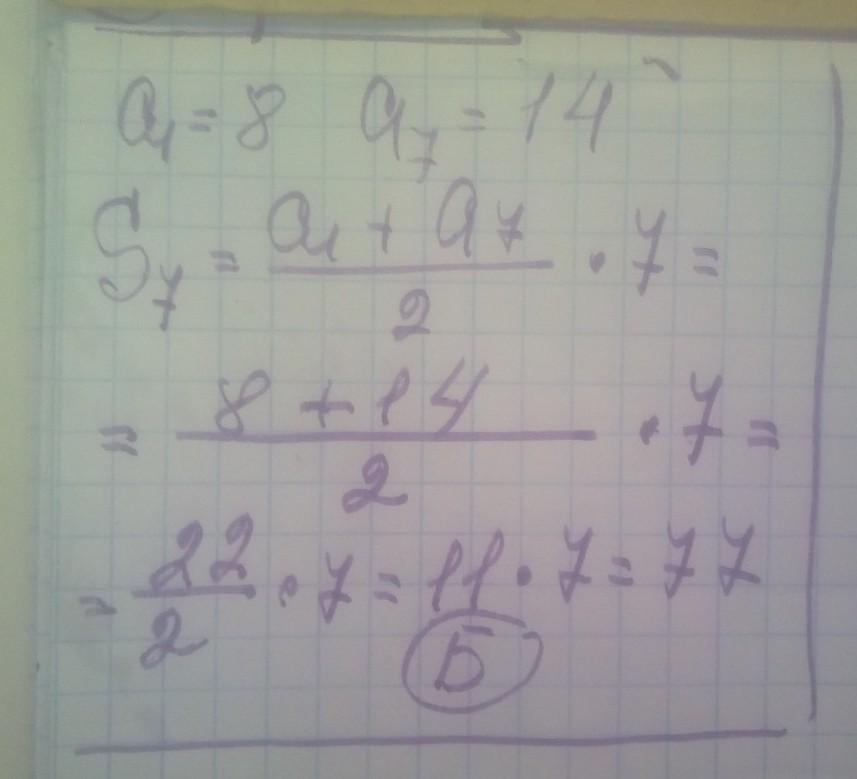 a₁ = 8 a₇ = 14
S₇ = (a₁ + a₇)/2 · 7 =
= (8 + 14)/2 · 7 =
= 22/2 · 7 = 11 · 7 = 77
Б